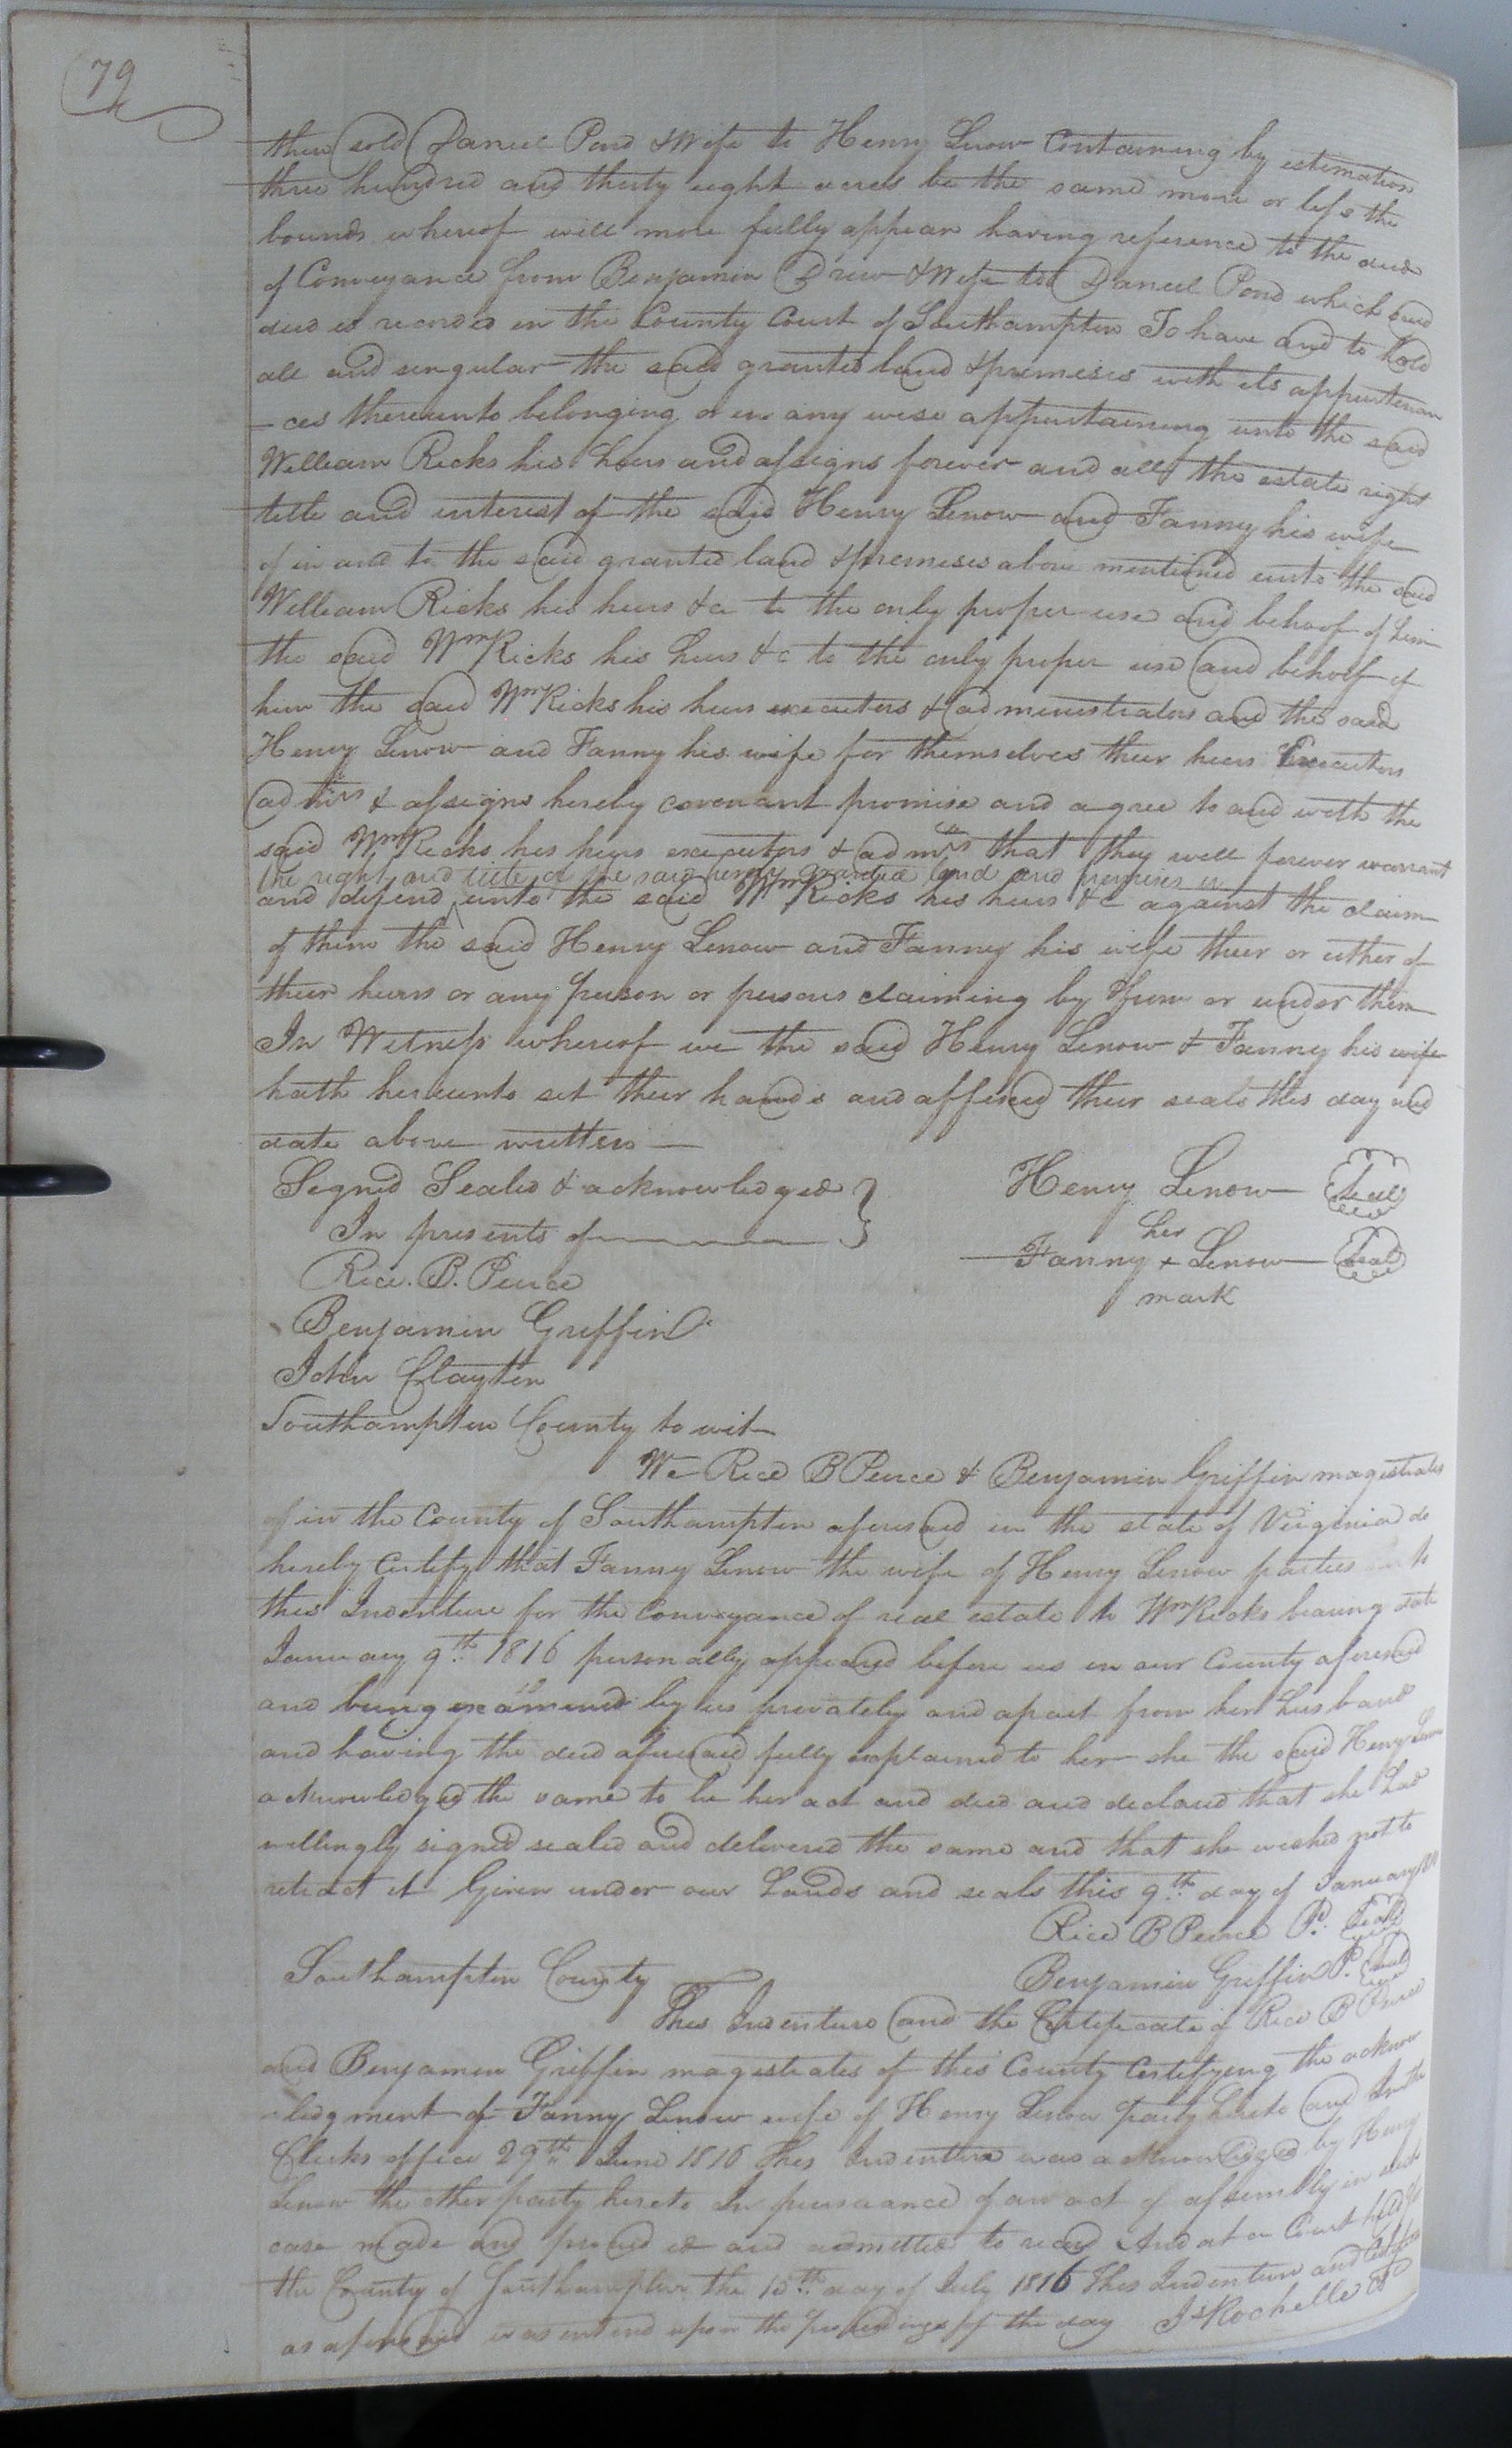 79
then sold Daniel Pond & Wife to Henry Lenow Containing by estimation
three hundred and thirty eight acres be the same more or less the
bounds whereof will more fully appear having reference to the deed
of Conveyance from Benjamin Drew & Wife to Daniel Pond which said
deed is recorded in the County Court of Southampton To have and to hold
all and singular the said granted land & premises with its appurtenan
-ces thereunto belonging or in any wise appertaining unto the said
William Ricks his heirs and assigns forever and all the estate right
title and interest of the said Henry Lenow and Fanny his wife
of in and to the said granted land & premises above mentioned unto the said
William Ricks his heirs &c to the only proper use and behoof of him
the said Wm Ricks his heirs &c to the only proper use and behoof of
him the said Wm Ricks his heirs executors & administrators and the said
Henry Lenow and Fanny his wife for themselves their heirs Executors
admrs & assigns hereby covenant promise and agree to and with the
said Wm Ricks his heirs executors & admrs that they will forever warrant
the right and title of the said hereby granted land and premises
and defend unto the said Wm Ricks his heirs &c against the claim
of them the said Henry Lenow and Fanny his wife their or either of
their heirs or any person or persons claiming by from or under them
In Witness whereof we the said Henry Lenow & Fanny his wife
hath hereunto set their hands and affixed their seals this day and
date above written
Signed Sealed & acknowledged } Henry Lenow Seal
In presents of her
Rice. B. Peirce Fanny + Lenow Seal
mark
Benjamin Griffin
John Clayton
Southampton County to wit
We Rice B Peirce & Benjamin Griffin magistrates
of in the County of Southampton aforesaid in the state of Virginia do
hereby certify that Fanny Lenow the wife of Henry Lenow parties to
this Indenture for the Conveyance of real estate to Wm Ricks bearing date
January 9th 1816 personally appeared before us in our County aforesaid
and being examined by us privately and apart from her husband
and having the deed aforesaid fully explained to her she the said Henry Lenow
acknowledged the same to be her act and deed and declared that she had
willingly signed sealed and delivered the same and that she wished not to
retract it Given under our hands and seals this 9th day of January
Rice B Peirce P. Seal
Southampton County Benjamin Griffin P. Seal
This Indenture and the Certificate of Rice B Peirce
and Benjamin Griffin magistrates of this County Certifying the acknow
ledgment of Fanny Lenow wife of Henry Lenow party hereto and In the
Clerks office 29th June 1816 This Indenture was acknowledged by Henry
Lenow the other party hereto In pursuance of an act of assembly in such
case made and provided and admitted to record And at a Court held for
the County of Southampton the 15th day of July 1816 This Indenture and Certificate
as aforesaid was entered upon the proceedings of the day Js Rochelle